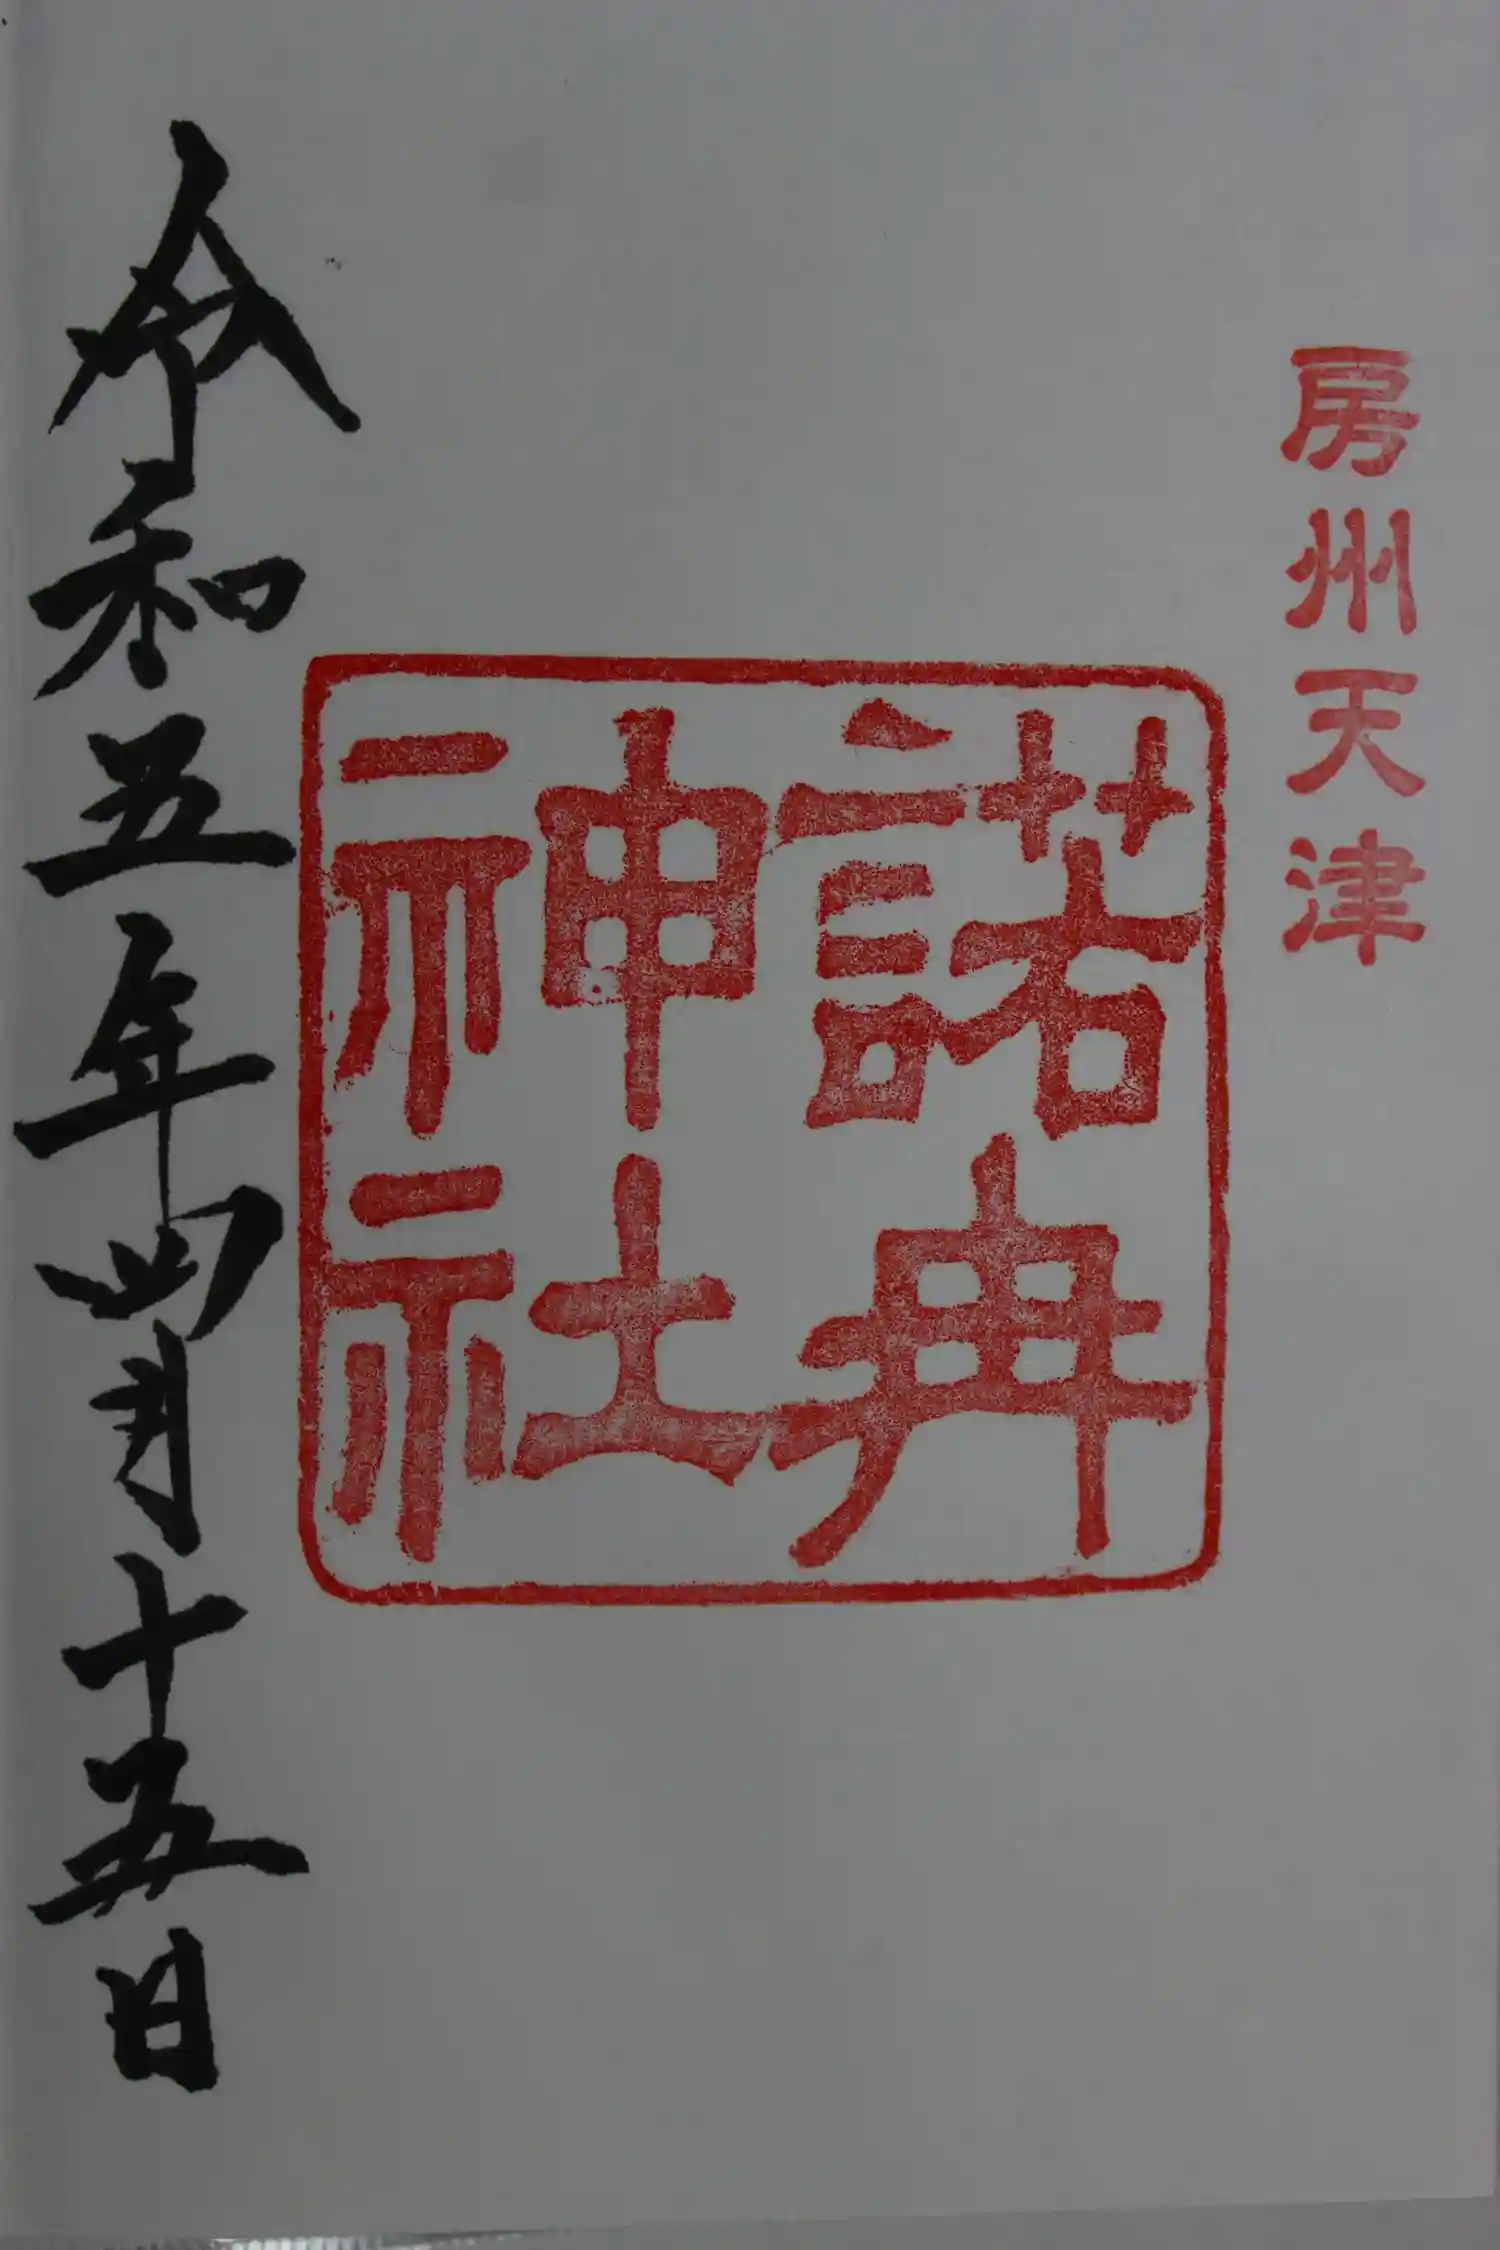 房州天津
諾冉
神社
令和五年四月十五日